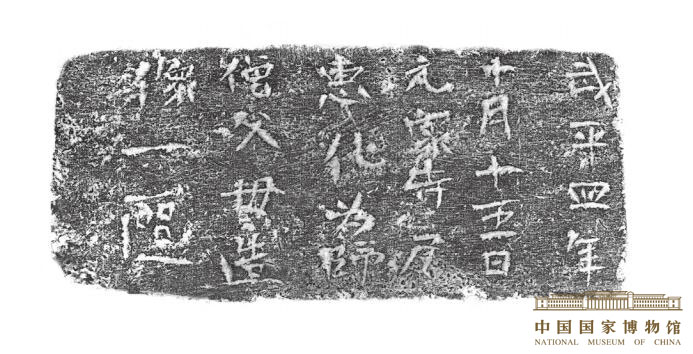 武平四年
十月十五日
元寺尼
惠化为師
僧父母造
像一區
中国国家博物馆
NATIONAL MUSEUM OF CHINA